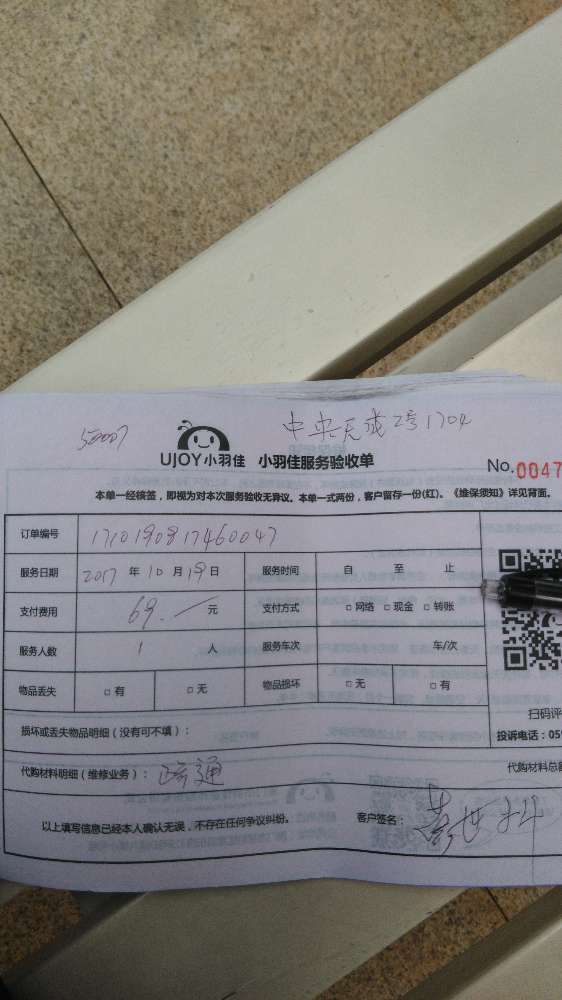 50007 中央天成2号1704
UJOY小羽佳 小羽佳服务验收单 No.0047
本单一经核签，即视为对本次服务验收无异议。本单一式两份，客户留存一份(红)。《维保须知》详见背面。
订单编号 1710190817460047
服务日期 2017 年 10 月 19 日 服务时间 自 至 止
支付费用 69.一 元 支付方式 □ 网络 □ 现金 □ 转账
服务人数 1 人 服务车次 车/次
物品丢失 □ 有 □ 无 物品损坏 □ 无 □ 有
扫码评
损坏或丢失物品明细（没有可不填）： 投诉电话：059
代购材料明细（维修业务）： 疏通 代购材料总
以上填写信息已经本人确认无误，不存在任何争议纠纷。 客户签名：